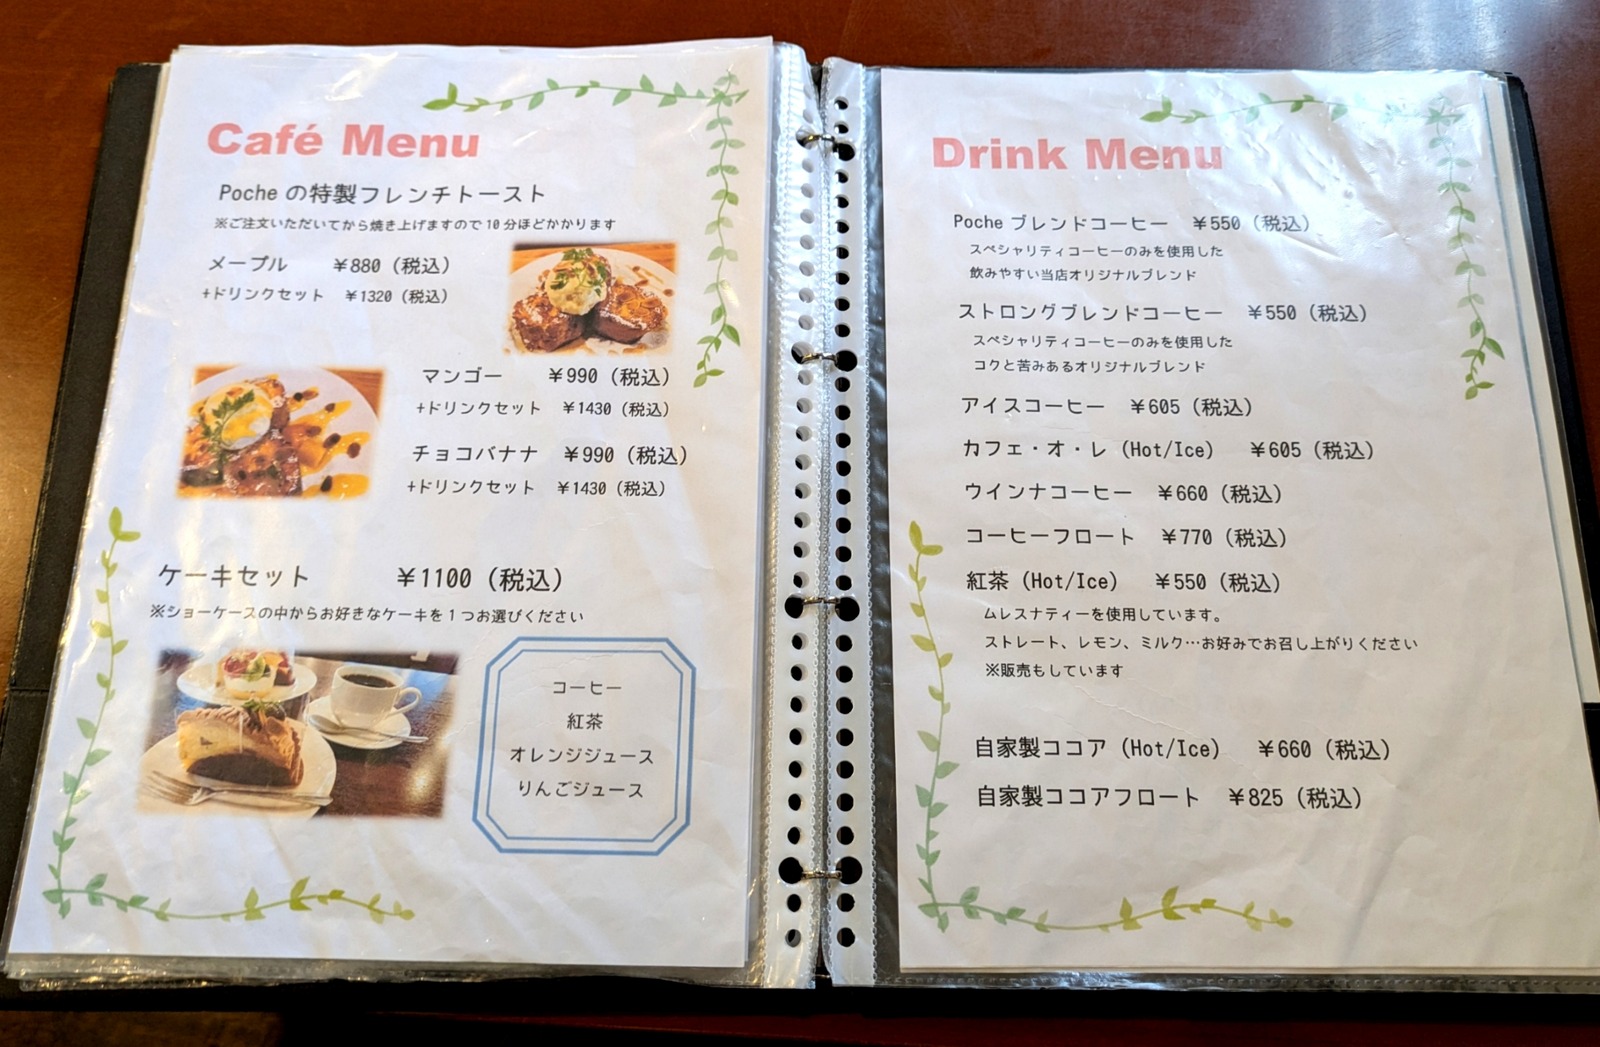 Café Menu
Poche の特製フレンチトースト
※ご注文いただいてから焼き上げますので10分ほどかかります
メープル ￥880（税込）
+ドリンクセット ￥1320（税込）
マンゴー ￥990（税込）
+ドリンクセット ￥1430（税込）
チョコバナナ ￥990（税込）
+ドリンクセット ￥1430（税込）
ケーキセット ￥1100（税込）
※ショーケースの中からお好きなケーキを１つお選びください
コーヒー
紅茶
オレンジジュース
りんごジュース
Drink Menu
Poche ブレンドコーヒー ￥550（税込）
スペシャリティコーヒーのみを使用した
飲みやすい当店オリジナルブレンド
ストロングブレンドコーヒー ￥550（税込）
スペシャリティコーヒーのみを使用した
コクと苦みあるオリジナルブレンド
アイスコーヒー ￥605（税込）
カフェ・オ・レ（Hot/Ice） ￥605（税込）
ウインナコーヒー ￥660（税込）
コーヒーフロート ￥770（税込）
紅茶（Hot/Ice） ￥550（税込）
ムレスナティーを使用しています。
ストレート、レモン、ミルク…お好みでお召し上がりください
※販売もしています
自家製ココア（Hot/Ice） ￥660（税込）
自家製ココアフロート ￥825（税込）